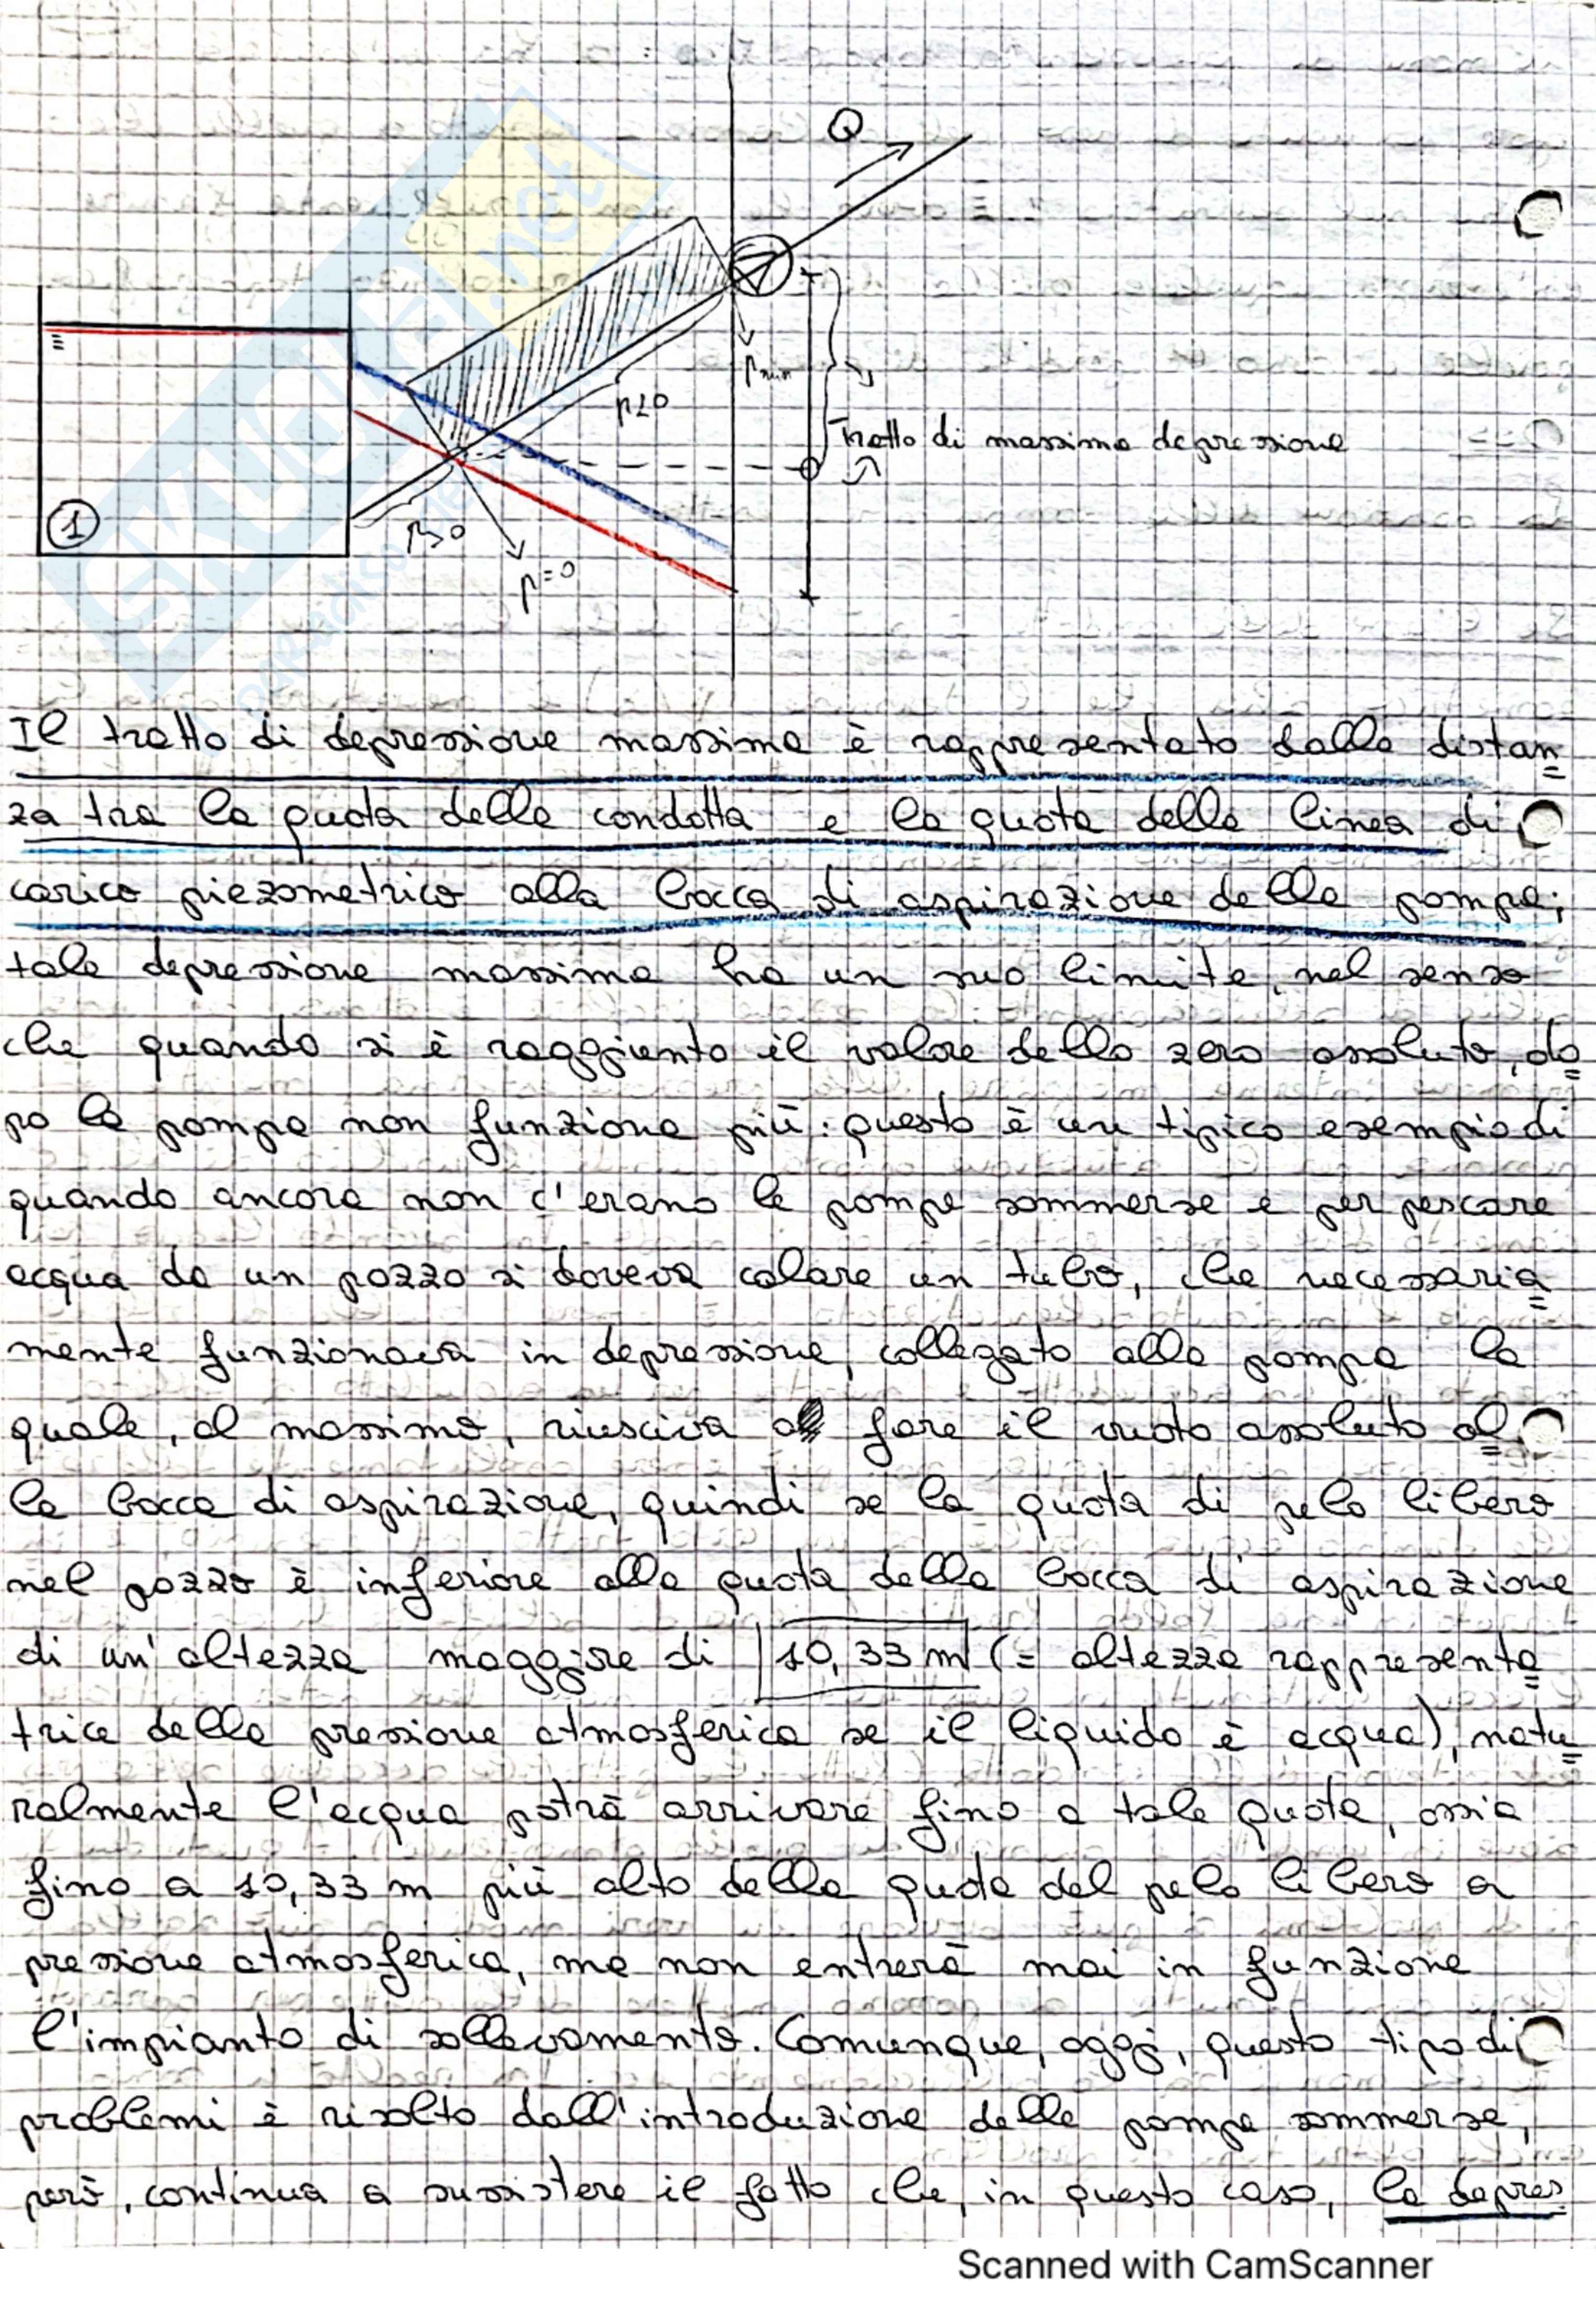 Q
p min
p<0
Tratto di massima depressione
1
p>0
p=0
Il tratto di depressione massima è rappresentato dalla distan
za tra la quota della condotta e la quota della linea di
carico piezometrico alla bocca di aspirazione della pompa;
tale depressione massima ha un suo limite, nel senso
che quando si è raggiunto il valore dello zero assoluto, do
po la pompa non funziona più: questo è un tipico esempio di
quando ancora non c'erano le pompe sommerse e per pescare
acqua da un pozzo si doveva calare un tubo, che necessaria
mente funzionava in depressione, collegato alla pompa la
quale, al massimo, riusciva a fare il vuoto assoluto al
la bocca di aspirazione, quindi se la quota di pelo libero
nel pozzo è inferiore alla quota della bocca di aspirazione
di un'altezza maggiore di 10,33 m (= altezza rappresenta
trice della pressione atmosferica se il liquido è acqua), natu
ralmente l'acqua potrà arrivare fino a tale quota, ossia
fino a 10,33 m più alto della quota del pelo libero a
pressione atmosferica, ma non entrerà mai in funzione
l'impianto di sollevamento. Comunque, oggi, questo tipo di
problemi è risolto dall'introduzione delle pompe sommerse,
però, continua a sussistere il fatto che, in questo caso, la depres
SKUOLA.net
Scanned with CamScanner